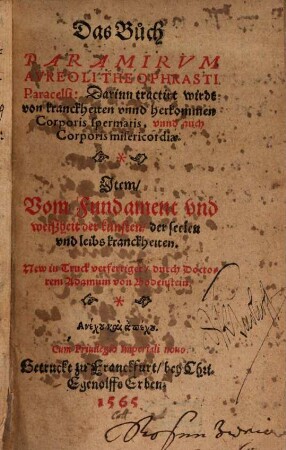 Das Bůch
PARAMIRVM
AVREOLI THEOPHRASTI
Paracelsi: Darinn tractirt wirdt
von kranckheiten vnnd herkommen
Corporis spermatis, vnnd auch
Corporis misericordiæ.
Item/
Vom Fundament vnd
weißheit der künsten/ der seelen
vnd leibs kranckheiten.
New in Truck verfertiget/ durch Docto-
rem Adamum von Bodenstein.
Ανέχȣ καὶ ἀπέχȣ.
Cum Priuilegio Imperiali nouo.
Getruckt zu Franckfurt/ bey Chri.
Egenolffs Erben.
1565